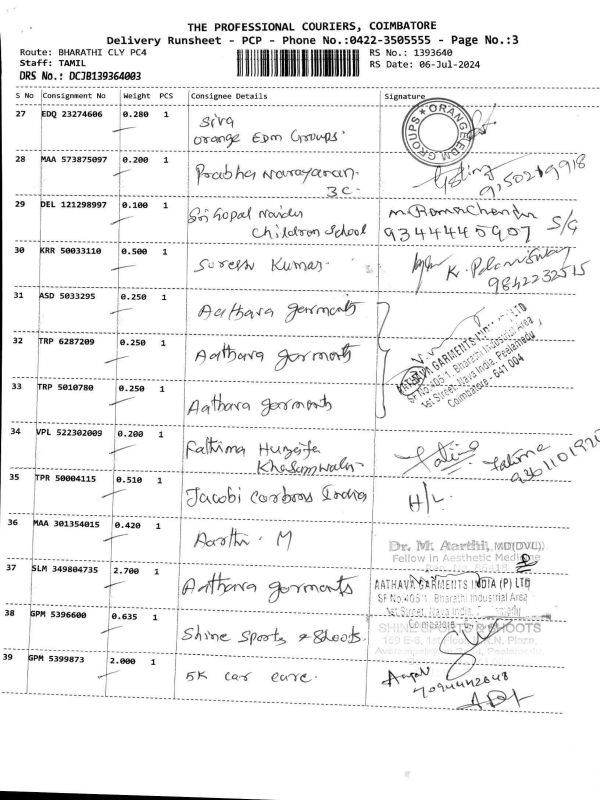 THE PROFESSIONAL COURIERS, COIMBATORE
Delivery Runsheet - PCP - Phone No.:0422-3505555 - Page No.:3
Route: BHARATHI CLY PC4
RS No.: 1393640
Staff: TAMIL
RS Date: 06-Jul-2024
DRS No.: DCJB139364003
S No Consignment No Weight PCS Consignee Details Signature
27 EDQ 23274606 0.280 1 Siva
Orange EDM Groups.
ORANGE EDM GROUPS
28 MAA 573875097 0.200 1 Prabha Narayanan.
3C.
9150219918
29 DEL 121298997 0.100 1 Sri Gopal Naidu
Children School
M. Rama Chandran
9344445907 S/G
30 KRR 50033110 0.500 1 Suresh Kumar.
9842232515
31 ASD 5033295 0.250 1 Aathava garments
32 TRP 6287209 0.250 1 Aathava garments
AATHAVA GARMENTS INDIA (P) LTD
SF No:405/1, Bharathi Industrial Area
1st Street, Nava India, Peelamedu
Coimbatore - 641 004
33 TRP 5010780 0.250 1 Aathava garments
34 VPL 522302009 0.200 1 Fathima Huzaifa
Fatima
35 TPR 50004115 0.510 1 Jacobi Carbons India
H/L.
36 MAA 301354015 0.420 1 Aarthi. M
Dr. M. Aarthi, MD(DVL))
Fellow in Aesthetic Medicine
37 SLM 349804735 2.700 1 Aathava garments
AATHAVA GARMENTS INDIA (P) LTD
SF No:405/1, Bharathi Industrial Area
1st Street, Nava India,
Coimbatore
38 GPM 5396600 0.635 1 Shine Sports & Shoots.
SHINE SPORTS & SHOOTS
39 GPM 5399873 2.000 1 5K car care.
7094442648